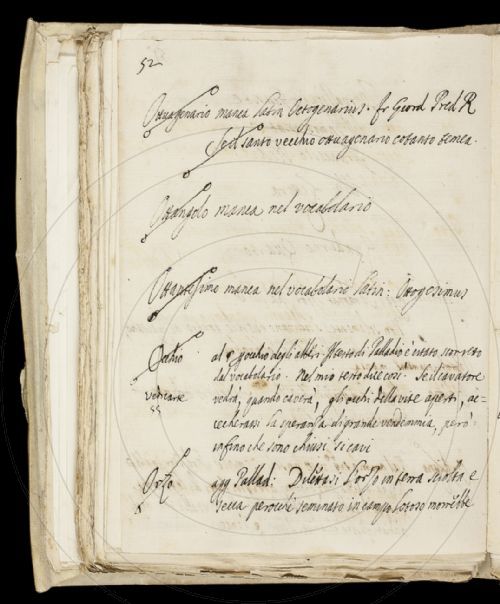 52
Ottuagenario manca latin Octogenarius. fr Giord Pred R
Se'l santo vecchio ottuagenario cotanto temea.
Ottangolo manca nel vocabolario
Ottantesimo manca nel vocabolario latin: Ottogesimus
Occhio al § occhio degli alberi. Il testo di Palladio è stato scorretto
dal vocabolario. Nel mio testo dice così. Se il cavatore
vedi carte vedrà, quando caverà, gli occhi della vite aperti, ac=
55 cecherassi la speranza di grande vendemmia, però
infino che sono chiusi si cavi
Orzo agg Pallad: Dilettasi l'orzo in terra sciolta e
secca perocchè seminato in campo lotoso morrebbe